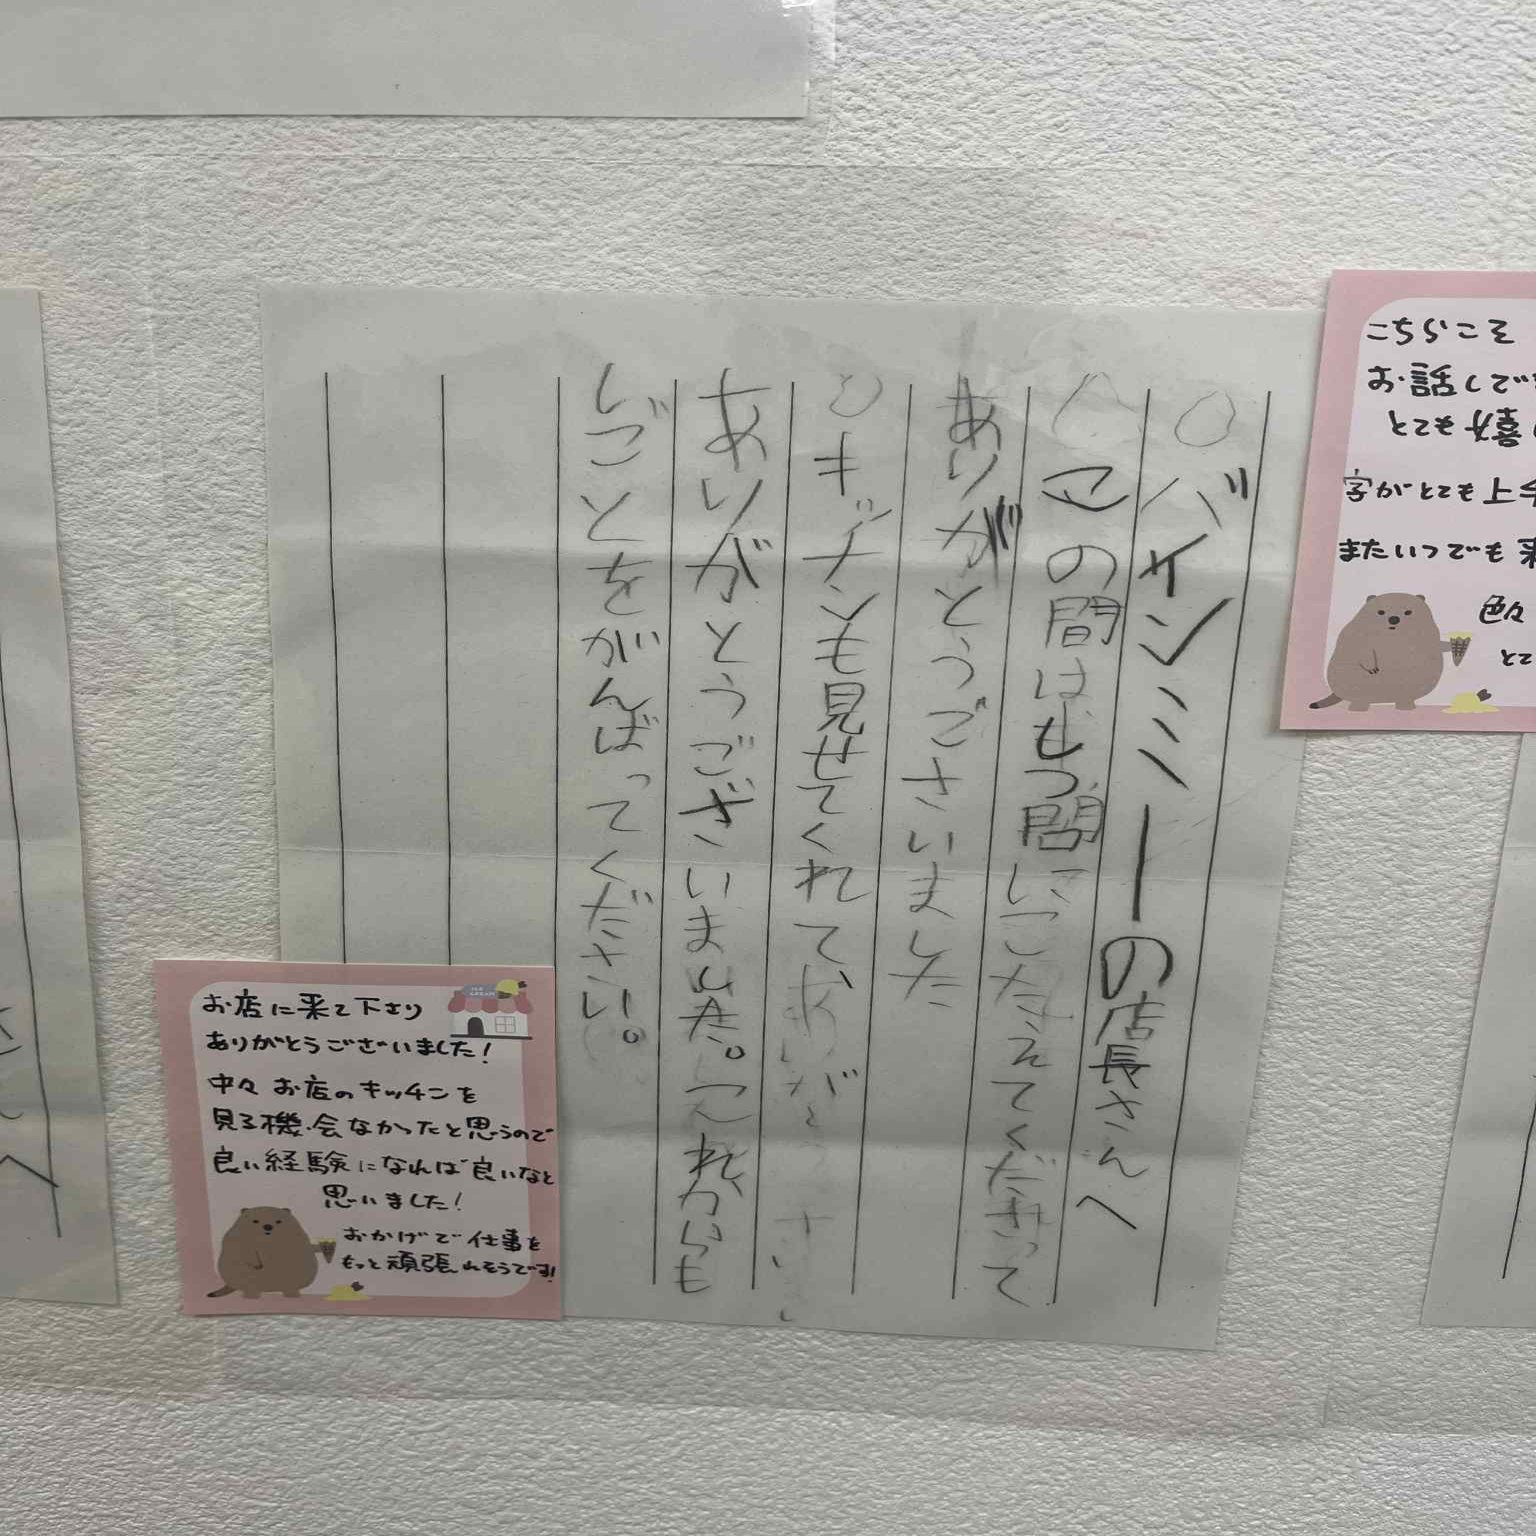 バインミーの店長さんへ
この間はもつ問にこたえてくだきって
ありがとうごさいました
キッチンも見せてくれて
ありがとうございました。これからも
しごとをがんばってください。
お店に来て下さり
ありがとうございました!
中々お店のキッチンを
見る機会なかったと思うので
良い経験になれば良いなと
思いました!
おかげで仕事を
もっと頑張れそうです!
こちらこそ
お話しでき
とても嬉し
字がとても上手
またいつでも来
色々
とて